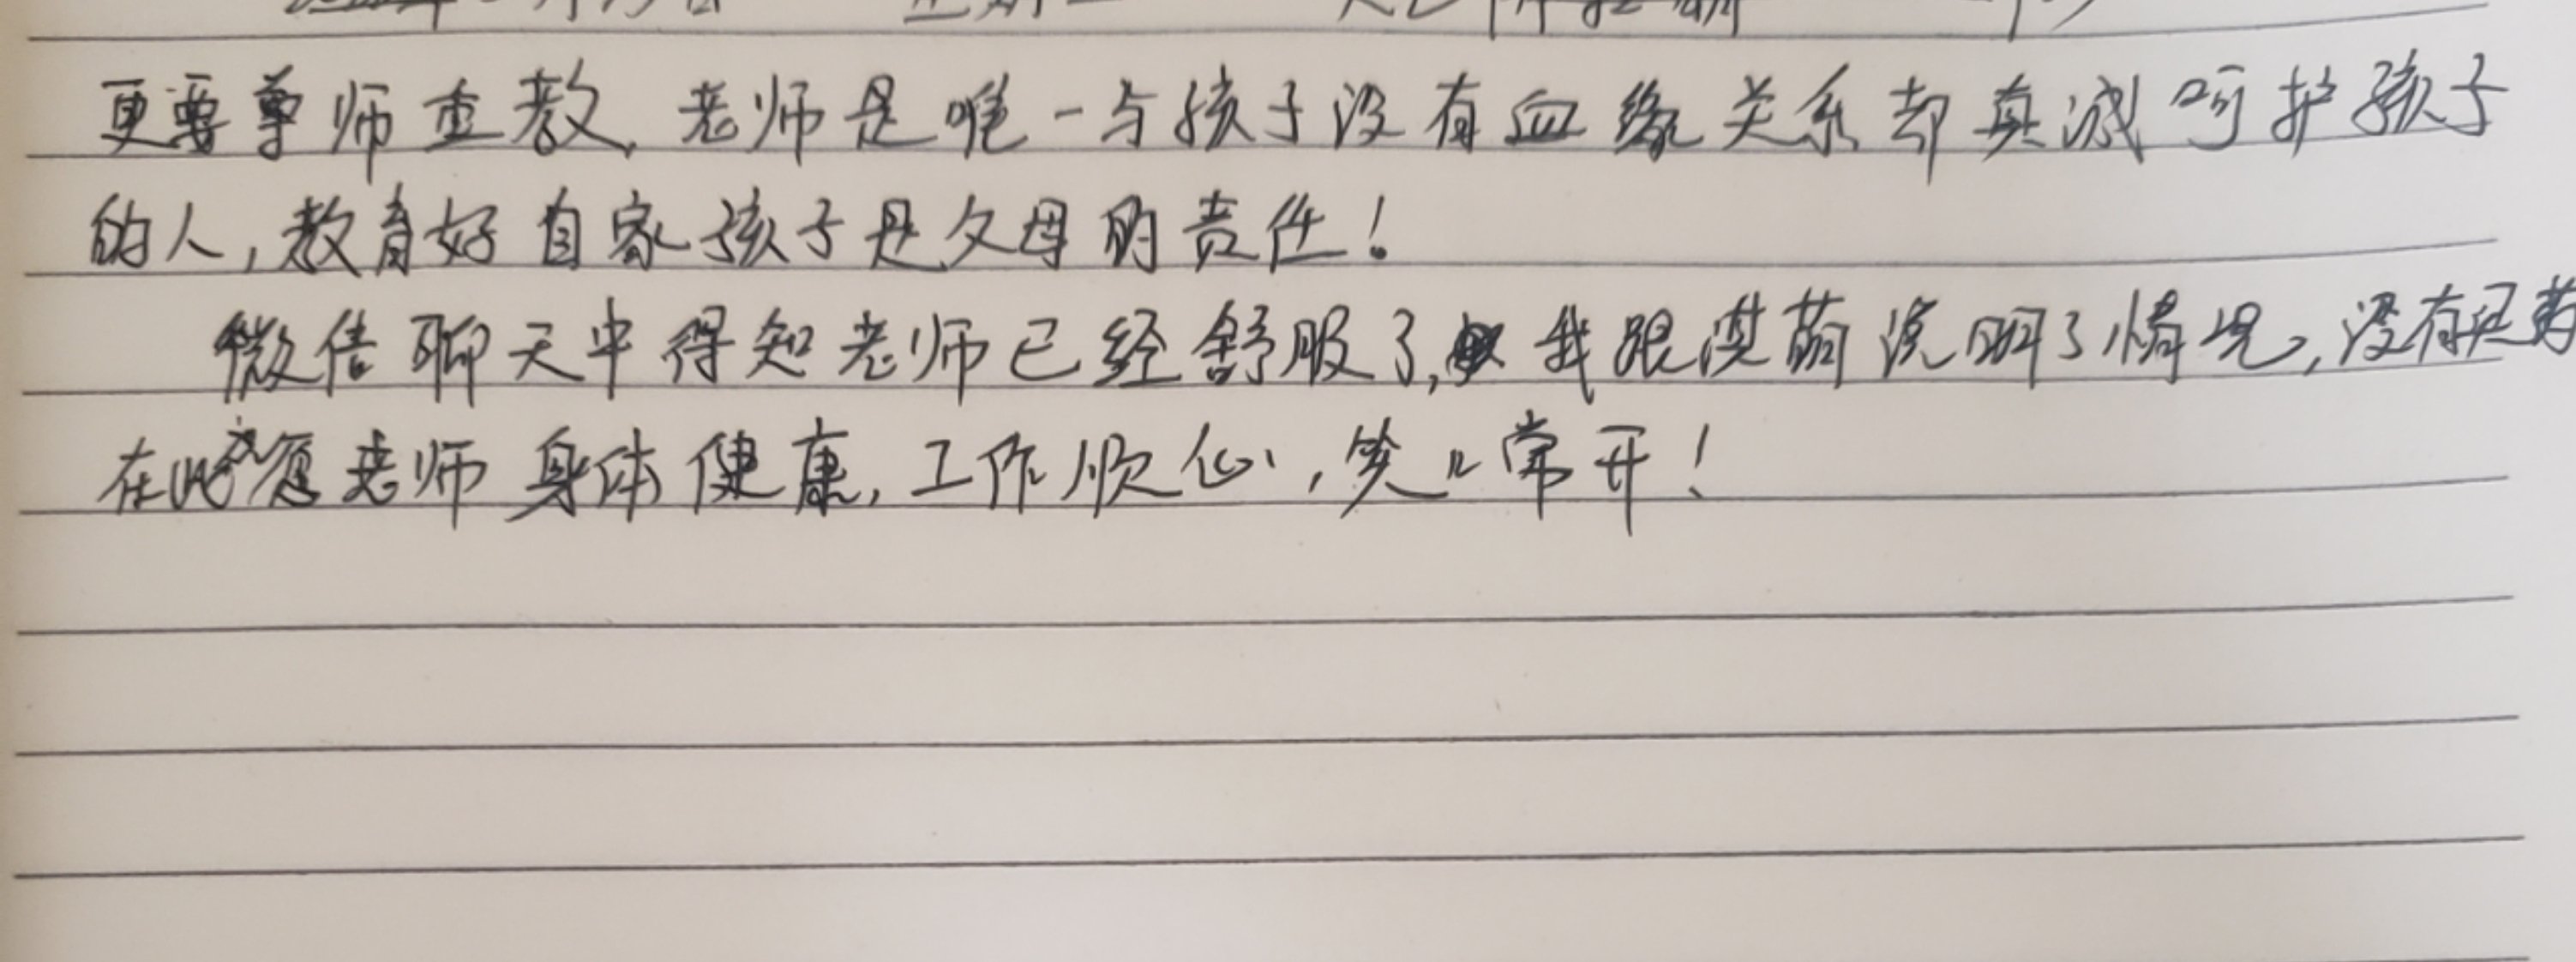 更要尊师重教,老师是唯一与孩子没有血缘关系却真诚呵护孩子
的人,教育好自家孩子是父母的责任!
微信聊天中得知老师已经舒服了,我跟淇萌说明了情况,没有
在此愿老师身体健康,工作顺心,笑儿常开!